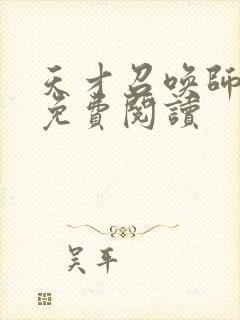 天才召喚師
免費閱讀
吴平